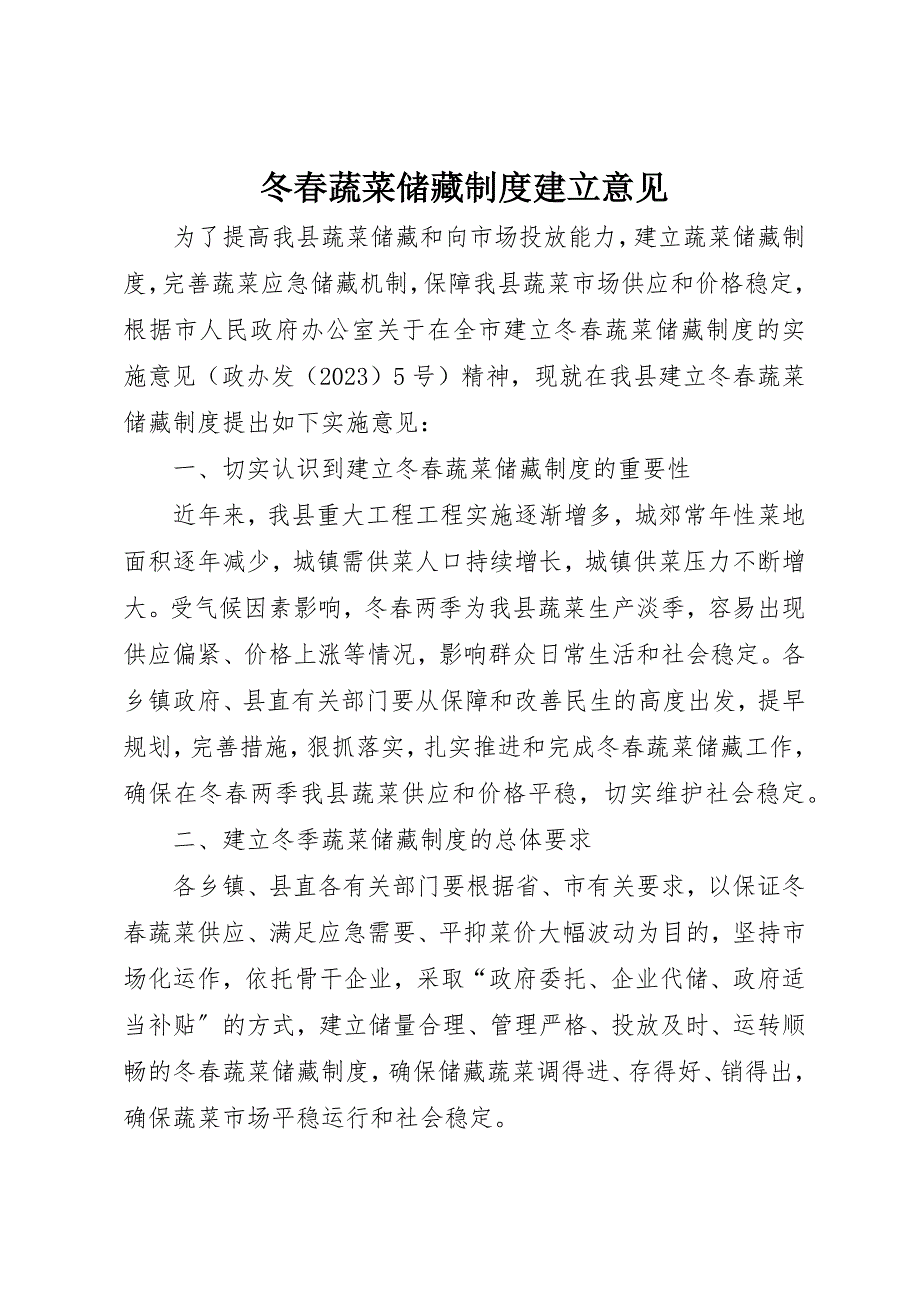 冬春蔬菜储藏制度建立意见
为了提高我县蔬菜储藏和向市场投放能力，建立蔬菜储藏制
度，完善蔬菜应急储藏机制，保障我县蔬菜市场供应和价格稳定，
根据市人民政府办公室关于在全市建立冬春蔬菜储藏制度的实
施意见（政办发（2023）5 号）精神，现就在我县建立冬春蔬菜
储藏制度提出如下实施意见：
一、切实认识到建立冬春蔬菜储藏制度的重要性
近年来，我县重大工程工程实施逐渐增多，城郊常年性菜地
面积逐年减少，城镇需供菜人口持续增长，城镇供菜压力不断增
大。受气候因素影响，冬春两季为我县蔬菜生产淡季，容易出现
供应偏紧、价格上涨等情况，影响群众日常生活和社会稳定。各
乡镇政府、县直有关部门要从保障和改善民生的高度出发，提早
规划，完善措施，狠抓落实，扎实推进和完成冬春蔬菜储藏工作，
确保在冬春两季我县蔬菜供应和价格平稳，切实维护社会稳定。
二、建立冬季蔬菜储藏制度的总体要求
各乡镇、县直各有关部门要根据省、市有关要求，以保证冬
春蔬菜供应、满足应急需要、平抑菜价大幅波动为目的，坚持市
场化运作，依托骨干企业，采取“政府委托、企业代储、政府适
当补贴〞的方式，建立储量合理、管理严格、投放及时、运转顺
畅的冬春蔬菜储藏制度，确保储藏蔬菜调得进、存得好、销得出，
确保蔬菜市场平稳运行和社会稳定。